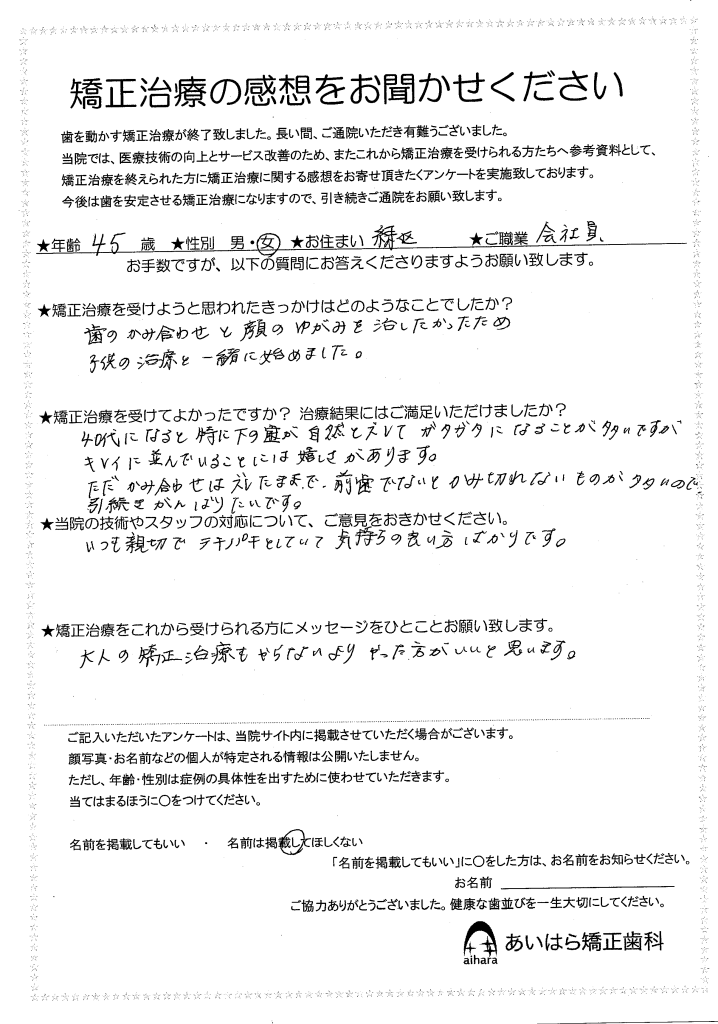 矯正治療の感想をお聞かせください
歯を動かす矯正治療が終了致しました。長い間、ご通院いただき有難うございました。
当院では、医療技術の向上とサービス改善のため、またこれから矯正治療を受けられる方たちへ参考資料として、
矯正治療を終えられた方に矯正治療に関する感想をお寄せ頂きたくアンケートを実施致しております。
今後は歯を安定させる矯正治療になりますので、引き続きご通院をお願い致します。
★年齢 45 歳 ★性別 男・女 ★お住まい 緑区 ★ご職業 会社員
お手数ですが、以下の質問にお答えくださりますようお願い致します。
★矯正治療を受けようと思われたきっかけはどのようなことでしたか？
歯のかみ合わせと顔のゆがみを治したかったため
子供の治療と一緒に始めました。
★矯正治療を受けてよかったですか？ 治療結果にはご満足いただけましたか？
40代になると特に下の歯が自然とズレてガタガタになることが多いですが
キレイに並んでいることには嬉しさがあります。
ただかみ合わせはズレたままで、前歯でないとかみ切れないものが多いので
引続きがんばりたいです。
★当院の技術やスタッフの対応について、ご意見をおきかせください。
いつも親切でテキパキとしていて気持ちの良い方ばかりです。
★矯正治療をこれから受けられる方にメッセージをひとことお願い致します。
大人の矯正治療もやらないよりやった方がいいと思います。
ご記入いただいたアンケートは、当院サイト内に掲載させていただく場合がございます。
顔写真・お名前などの個人が特定される情報は公開いたしません。
ただし、年齢・性別は症例の具体性を出すために使わせていただきます。
当てはまるほうに○をつけてください。
名前を掲載してもいい ・ 名前は掲載してほしくない
「名前を掲載してもいい」に○をした方は、お名前をお知らせください。
お名前
ご協力ありがとうございました。健康な歯並びを一生大切にしてください。
aihara あいはら矯正歯科